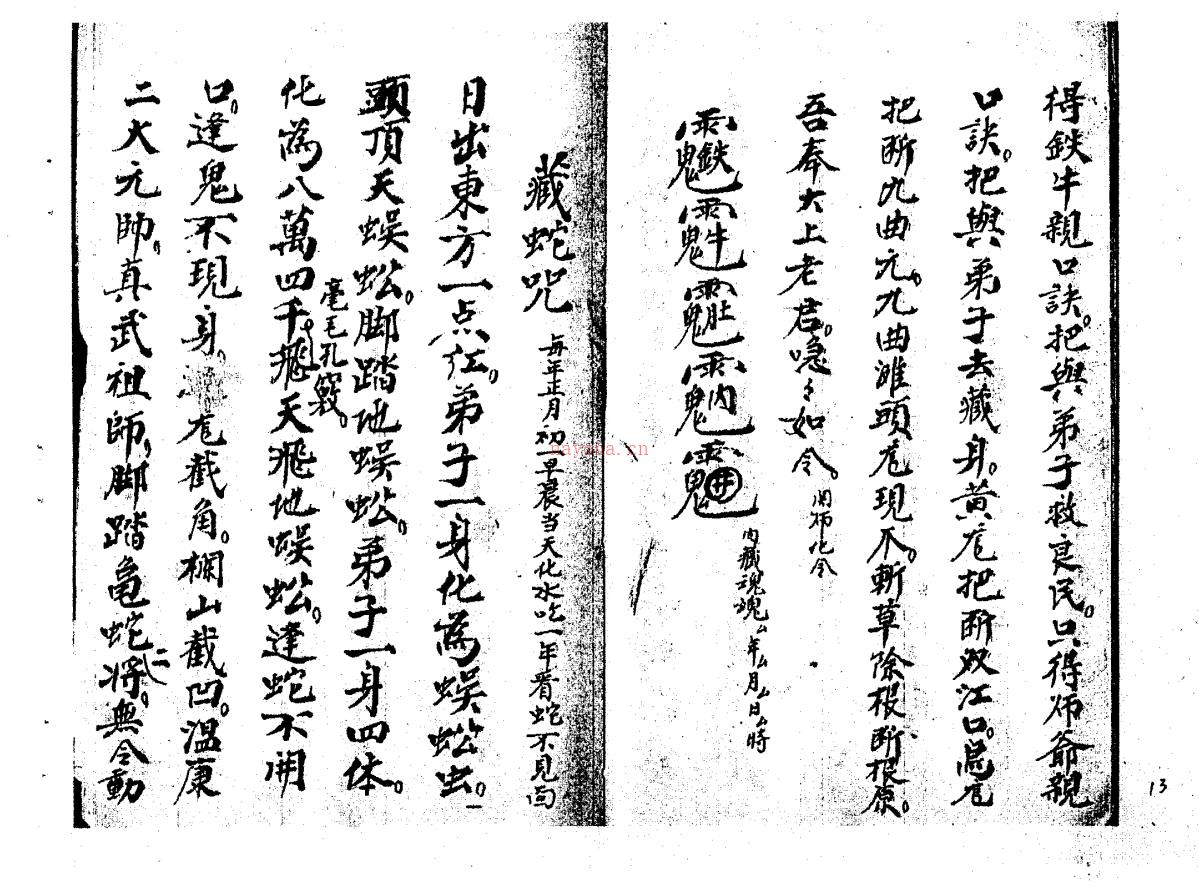 得鉄牛親口訣。把與弟子救良民。只得师爺親
口訣。把與弟子去藏身。黄尨把断双江口。尨
把断九曲亢。九曲滩頭尨現爪。斬草除根断根原。
吾奉大上老君。急〻如令。
化令
鉄 牛 肚 内 井
内藏魂魄厶年厶月厶日厶時
藏蛇咒
每年正月初一早晨当天化水吃一年看蛇不見面
日出東方一点红。弟子一身化為蜈蚣虫。一
頭頂天蜈蚣。脚踏地蜈蚣。弟子一身四体。
毫毛孔竅。
化為八萬四千飛天飛地蜈蚣。逢蛇不開
口。逢鬼不現身。尨截角。欄山截凹。温康
二大元帥。真武祖師。脚踏龟蛇二将。無令動
13